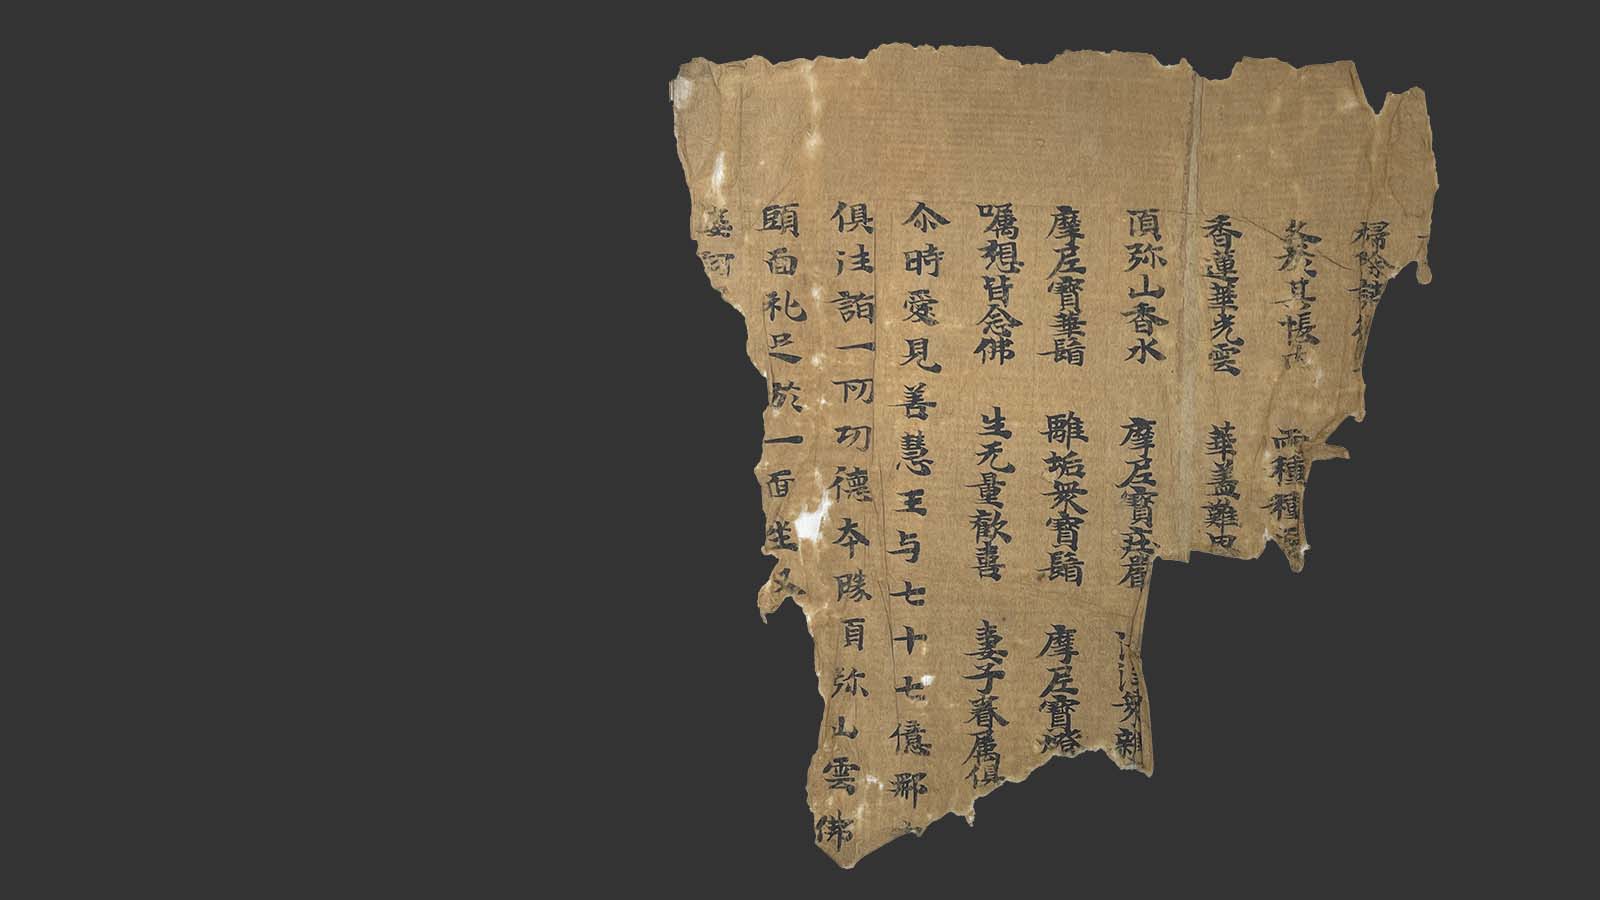 掃除
於其帳 雨種種
香蓮華光雲 華蓋難思
須弥山香水 摩尼寶莊嚴 衆雜
摩尼寶華鬚 離垢衆寶鬚 摩尼寶燈
囑想甘念佛 生无量歡喜 妻子眷属俱
尒時愛見善慧王与七十七億那
俱往詣一切功德本勝須弥山雲佛
頭面礼足於一面坐又